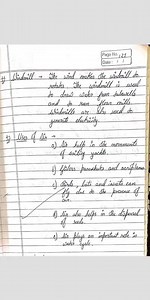 Page No.
Date
1) Windmill → The wind makes the windmill to
rotate. The windmill is used
to draw water from tubewells
and to run flour mills.
Windmills are also used to
generate electricity.
2) Uses of Air →
a) Air helps in the movements
of sailing yachts
b) gliders parachutes and aeroplanes
c) Birds, bats and insects can
fly due to the presence of
air.
d) Air also helps in the dispersal
of seeds.
e) Air plays an important role in
water cycle.